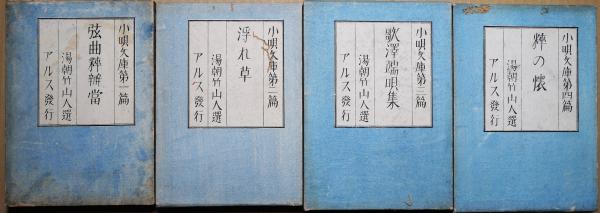 小唄文庫第一篇
弦曲粹辨當
湯朝竹山人選
アルス發行
小唄文庫第二篇
浮れ草
湯朝竹山人選
アルス發行
小唄文庫第三篇
歌澤端唄集
湯朝竹山人選
アルス發行
小唄文庫第四篇
粹の懷
湯朝竹山人選
アルス發行